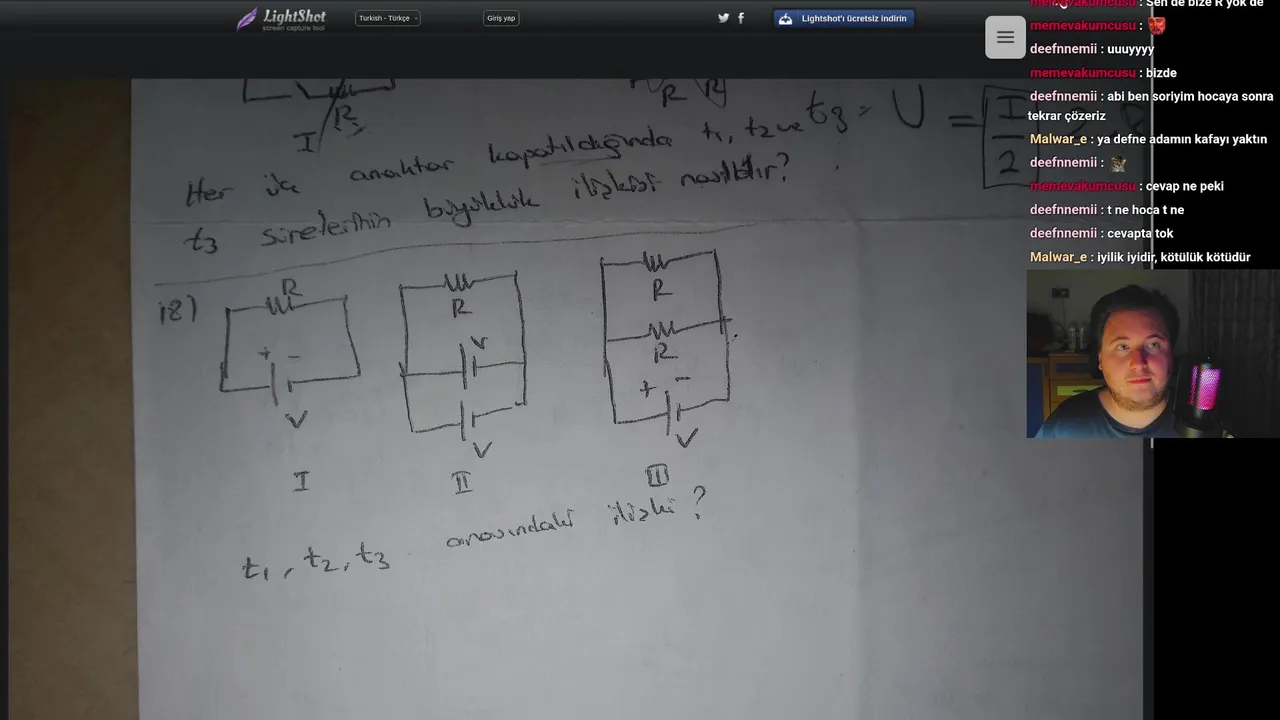 LightShot
screen capture tool
Turkish - Türkçe
Giriş yap
Lightshot'ı ücretsiz indirin
memevakumcusu : Sen de bize R yok de
memevakumcusu :
deefnnemii : uuuyyyy
memevakumcusu : bizde
deefnnemii : abi ben soriyim hocaya sonra
tekrar çözeriz
Malwar_e : ya defne adamın kafayı yaktın
deefnnemii :
memevakumcusu : cevap ne peki
deefnnemii : t ne hoca t ne
deefnnemii : cevapta tok
Malwar_e : iyilik iyidir, kötülük kötüdür
R
I
R R
Her iki anahtar kapatıldığında t1, t2 ve t3 = U = I
2
t3 sürelerinin büyüklük ilişkisi nasıldır?
18)
R
+ -
V
I
R
V
V
II
R
R
+ -
V
III
t1, t2, t3 arasındaki ilişki?